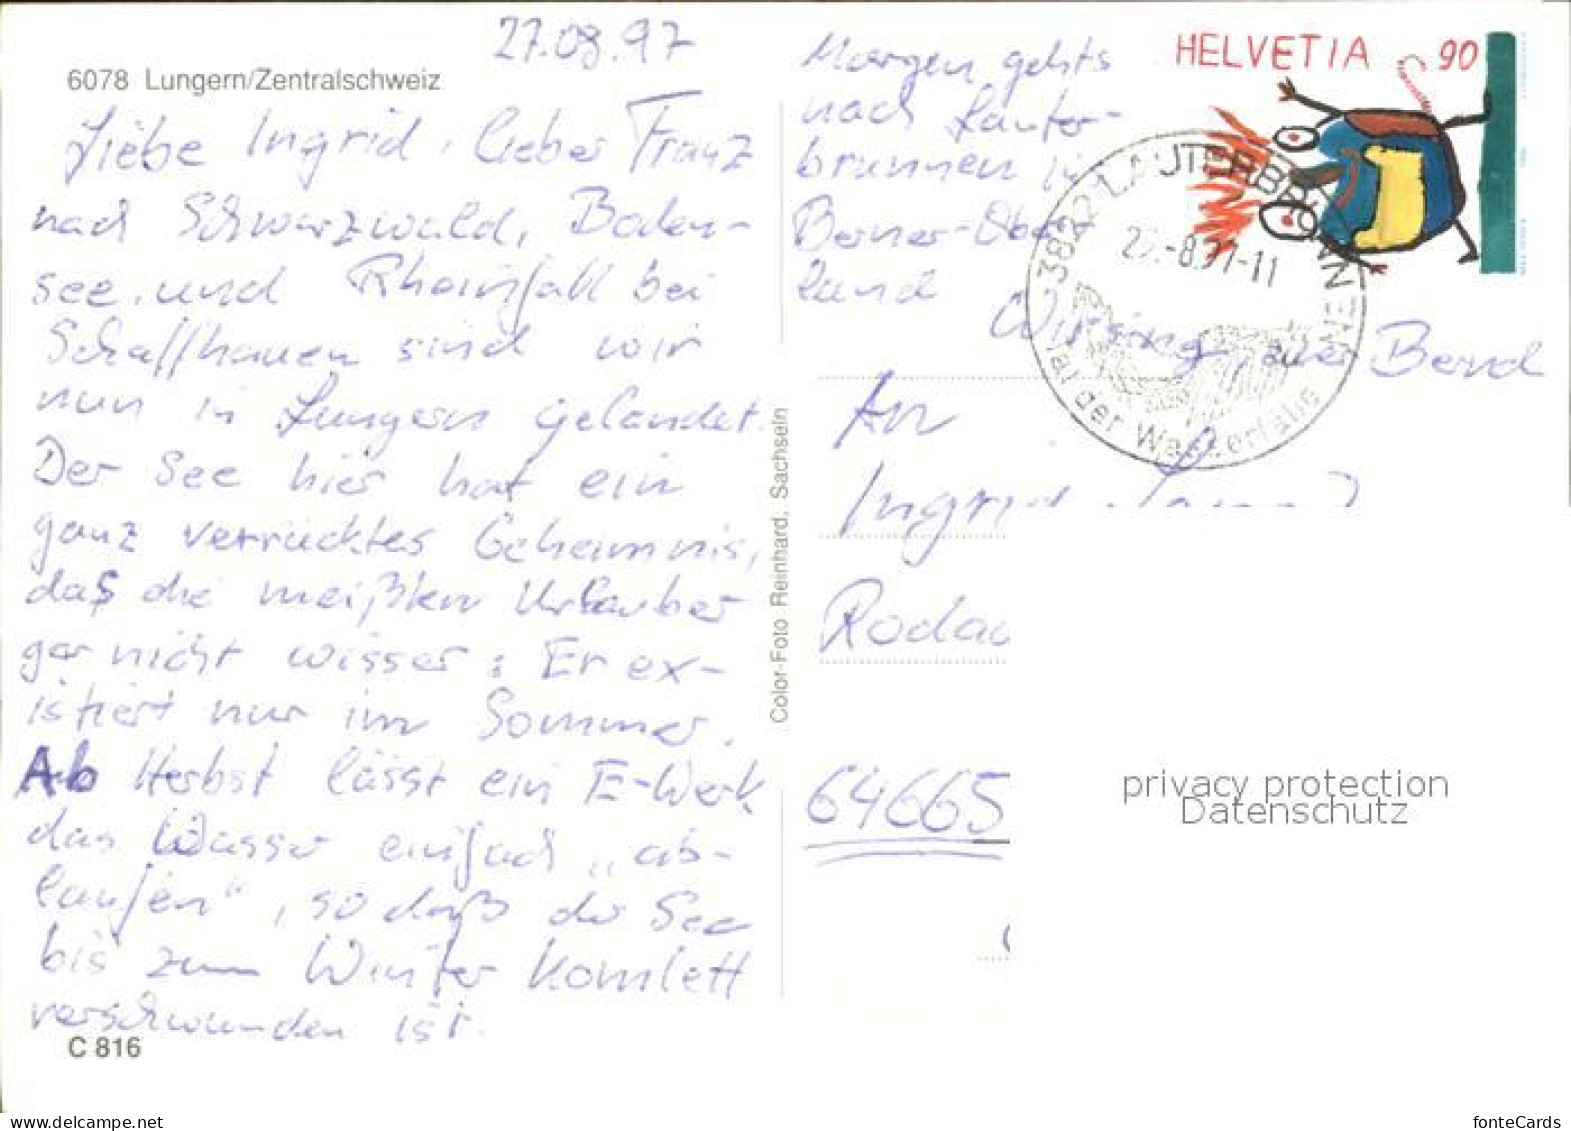 27.08.97
6078 Lungern/Zentralschweiz
Liebe Ingrid, lieber Franz
nach Schwarzwald, Boden-
see, und Rheinfall bei
Schaffhausen sind wir
nun in Lungern gelandet.
Der See hier hat ein
ganz verrücktes Geheimnis,
daß die meißten Urlauber
gar nicht wissen: Er ex-
istiert nur im Sommer.
Ab Herbst lässt ein E-Werk
das Wasser einfach „ab-
laufen“, so daß der See
bis zum Winter komlett
verschwunden ist.
C 816
Color-Foto Reinhard, Sachseln
Morgen gehts
nach Lauter-
brunnen in
Berner-Ober
land
Bernd
HELVETIA 90
3822 LAUTERBRUNNEN
-8.97-11
Tal der Wasserfälle
An
Ingrid
Rodau
64665
privacy protection
Datenschutz
fonteCards